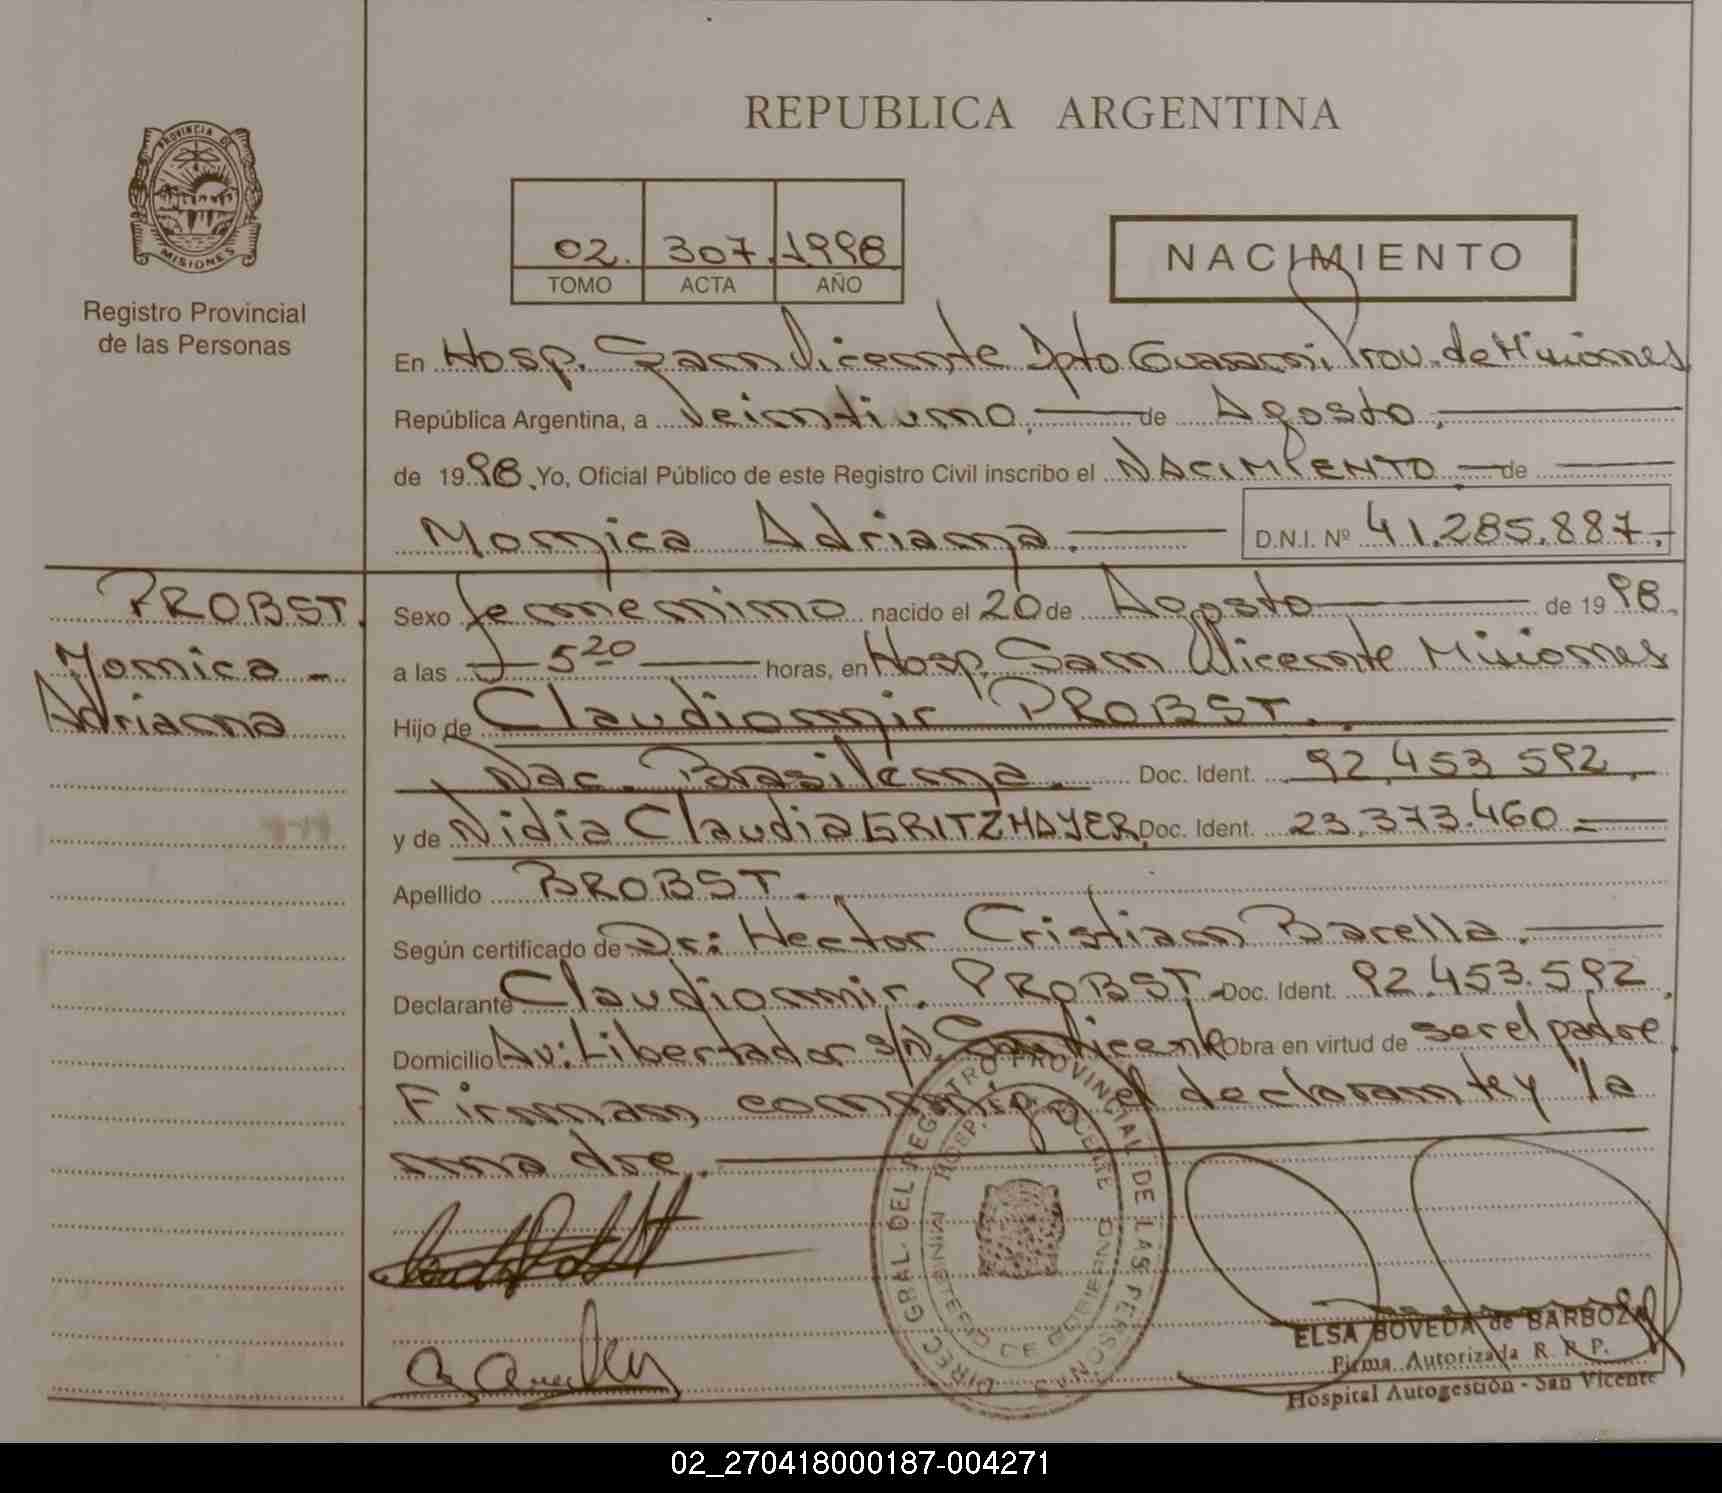 REPUBLICA ARGENTINA
PROVINCIA DE
MISIONES
Registro Provincial
de las Personas
02. 307. 1998
TOMO ACTA AÑO
NACIMIENTO
En Hosp. San Vicente Dpto Guarani Prov. de Misiones
República Argentina, a Veintiuno, de Agosto,
de 1998. Yo, Oficial Público de este Registro Civil inscribo el NACIMIENTO de
Monica Adriana. D.N.I. Nº 41.285.887.
PROBST.
Monica -
Adriana
Sexo femenino nacido el 20 de Agosto de 1998.
a las 5 20 horas, en Hosp. San Vicente Misiones
Hijo de Claudiomir PROBST.
Nac. Brasilena. Doc. Ident. 92.453 592.
y de Nidia Claudia GRITZMAYER, Doc. Ident. 23.373.460
Apellido PROBST.
Según certificado de Dr: Hector Cristian Barella.
Declarante Claudiomir. PROBST. Doc. Ident. 92.453.592.
Domicilio Av: Libertador s/n. San Vicente Obra en virtud de ser el padre
Firman conmigo el declarante y la
madre.
DIREC. GRAL. DEL REGISTRO PROVINCIAL DE LAS PERSONAS
MINISTERIO DE GOBIERNO
ELSA BOVEDA de BARBOZA
Firma Autorizada R. P. P.
Hospital Autogestión - San Vicente
02_270418000187-004271